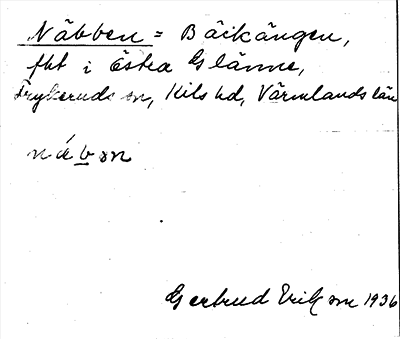 Näbben = Bäckängen,
fht i Östra Glänne,
Frykeruds sn, Kils hd, Värmlands län
Gertrud Erikson 1936